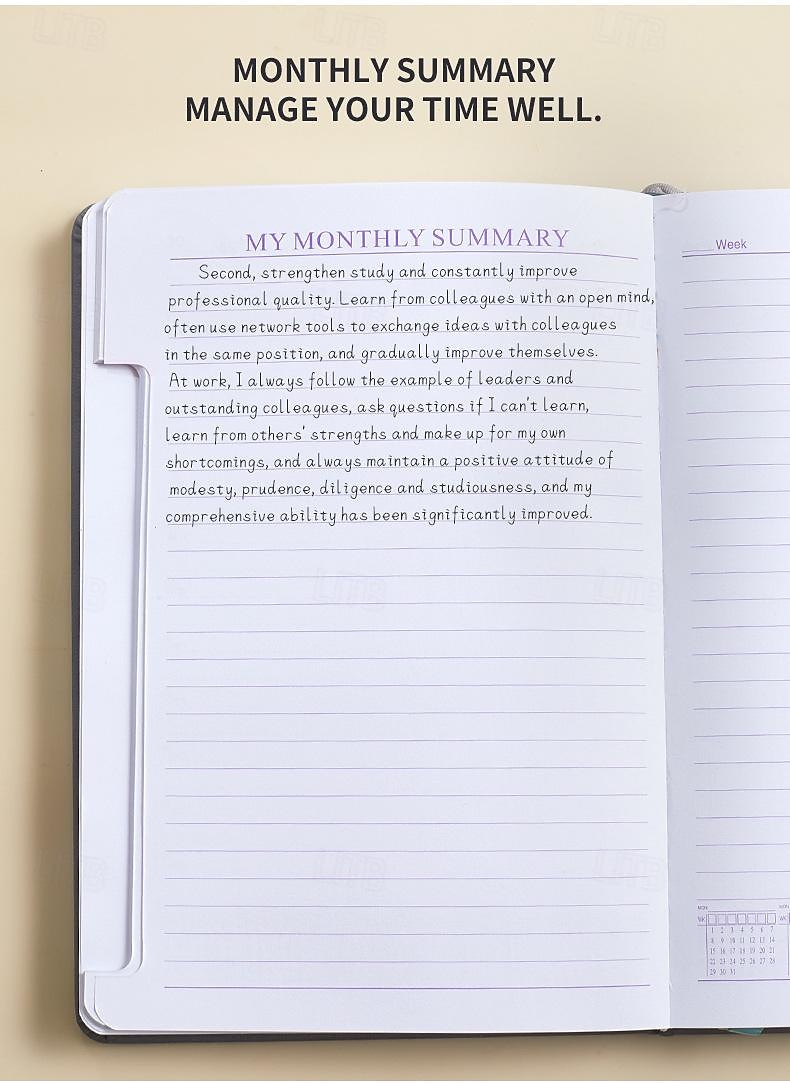 MONTHLY SUMMARY
MANAGE YOUR TIME WELL.
MY MONTHLY SUMMARY
Second, strengthen study and constantly improve
professional quality. Learn from colleagues with an open mind,
often use network tools to exchange ideas with colleagues
in the same position, and gradually improve themselves.
At work, I always follow the example of leaders and
outstanding colleagues, ask questions if I can't learn,
learn from others' strengths and make up for my own
shortcomings, and always maintain a positive attitude of
modesty, prudence, diligence and studiousness, and my
comprehensive ability has been significantly improved.
Week
MON
WK
1 2 3 4 5 6 7
8 9 10 11 12 13 14
15 16 17 18 19 20 21
22 23 24 25 26 27 28
29 30 31
MON
WK
LITB
LITB
LITB
LITB
LITB
LITB
LITB
LITB
LITB